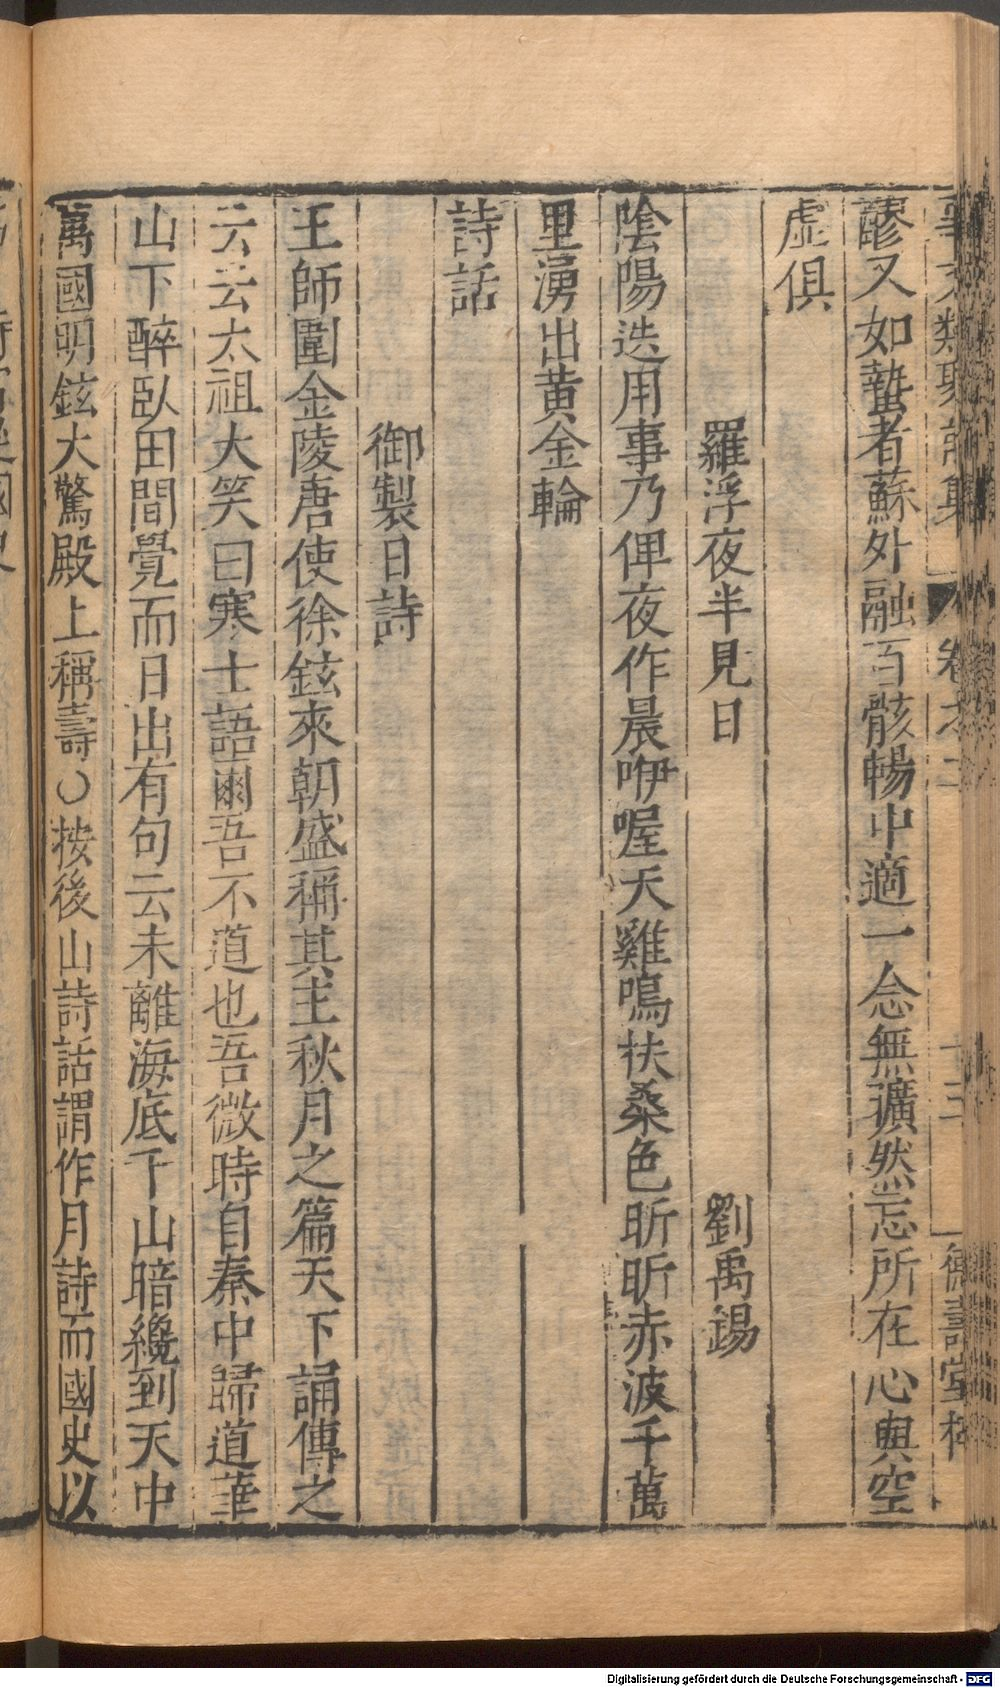 事文類聚前集 卷之二 十三 德壽堂梓
醪又如蟄者蘇外融百骸暢中適一念無曠然忘所在心與空
虛俱
羅浮夜半見日 劉禹錫
陰陽迭用事乃俾夜作晨咿喔天雞鳴扶桑色昕昕赤波千萬
里湧出黃金輪
詩話
御製日詩
王師圍金陵唐使徐鉉來朝盛稱其主秋月之篇天下誦傳之
云云太祖大笑曰寒士語爾吾不道也吾微時自秦中歸道華
山下醉臥田間覺而日出有句云未離海底千山暗纔到天中
萬國明鉉大驚殿上稱壽○按後山詩話謂作月詩而國史以
Digitalisierung gefördert durch die Deutsche Forschungsgemeinschaft - DFG